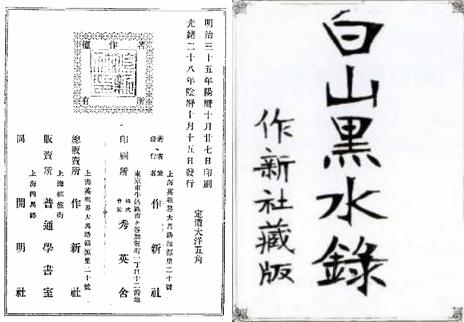 白山黑水錄
作新社藏版
明治三十五年陽曆十月廿七日印刷
光緒二十八年陰曆十月十五日發行
定價大洋五角
著作權所有
上海英租界大馬路
二十號
發行者 作新社
東京市牛込區市ヶ谷加賀町一丁目十二番地
印刷所 株式會社 秀英舍
上海英租界大馬路
二十號
總販賣所 作新社
上海棋盤街
販賣所 普通學書室
上海四馬路
同 開明社